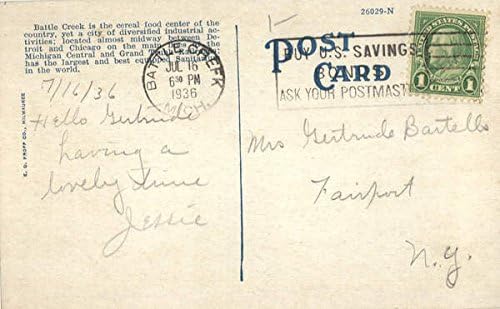 Battle Creek is the cereal food center of the
country, yet a city of diversified industrial ac-
tivities; located almost midway between De-
troit and Chicago on the main lines of the
Michigan Central and Grand Trunk Railways;
has the largest and best equipped Sanitarium
in the world.
26029-N
POST
CARD
BATTLE CREEK
JUL 16
6 30 PM
1936
MICH.
BUY U.S. SAVINGS
BONDS
ASK YOUR POSTMAST
1 CENT 1
E. C. KROPP CO., MILWAUKEE
7/16/36
Hello Gertrude
having a
lovely time
Jessie
Mrs Gertrude Bartells
Fairport
N.Y.